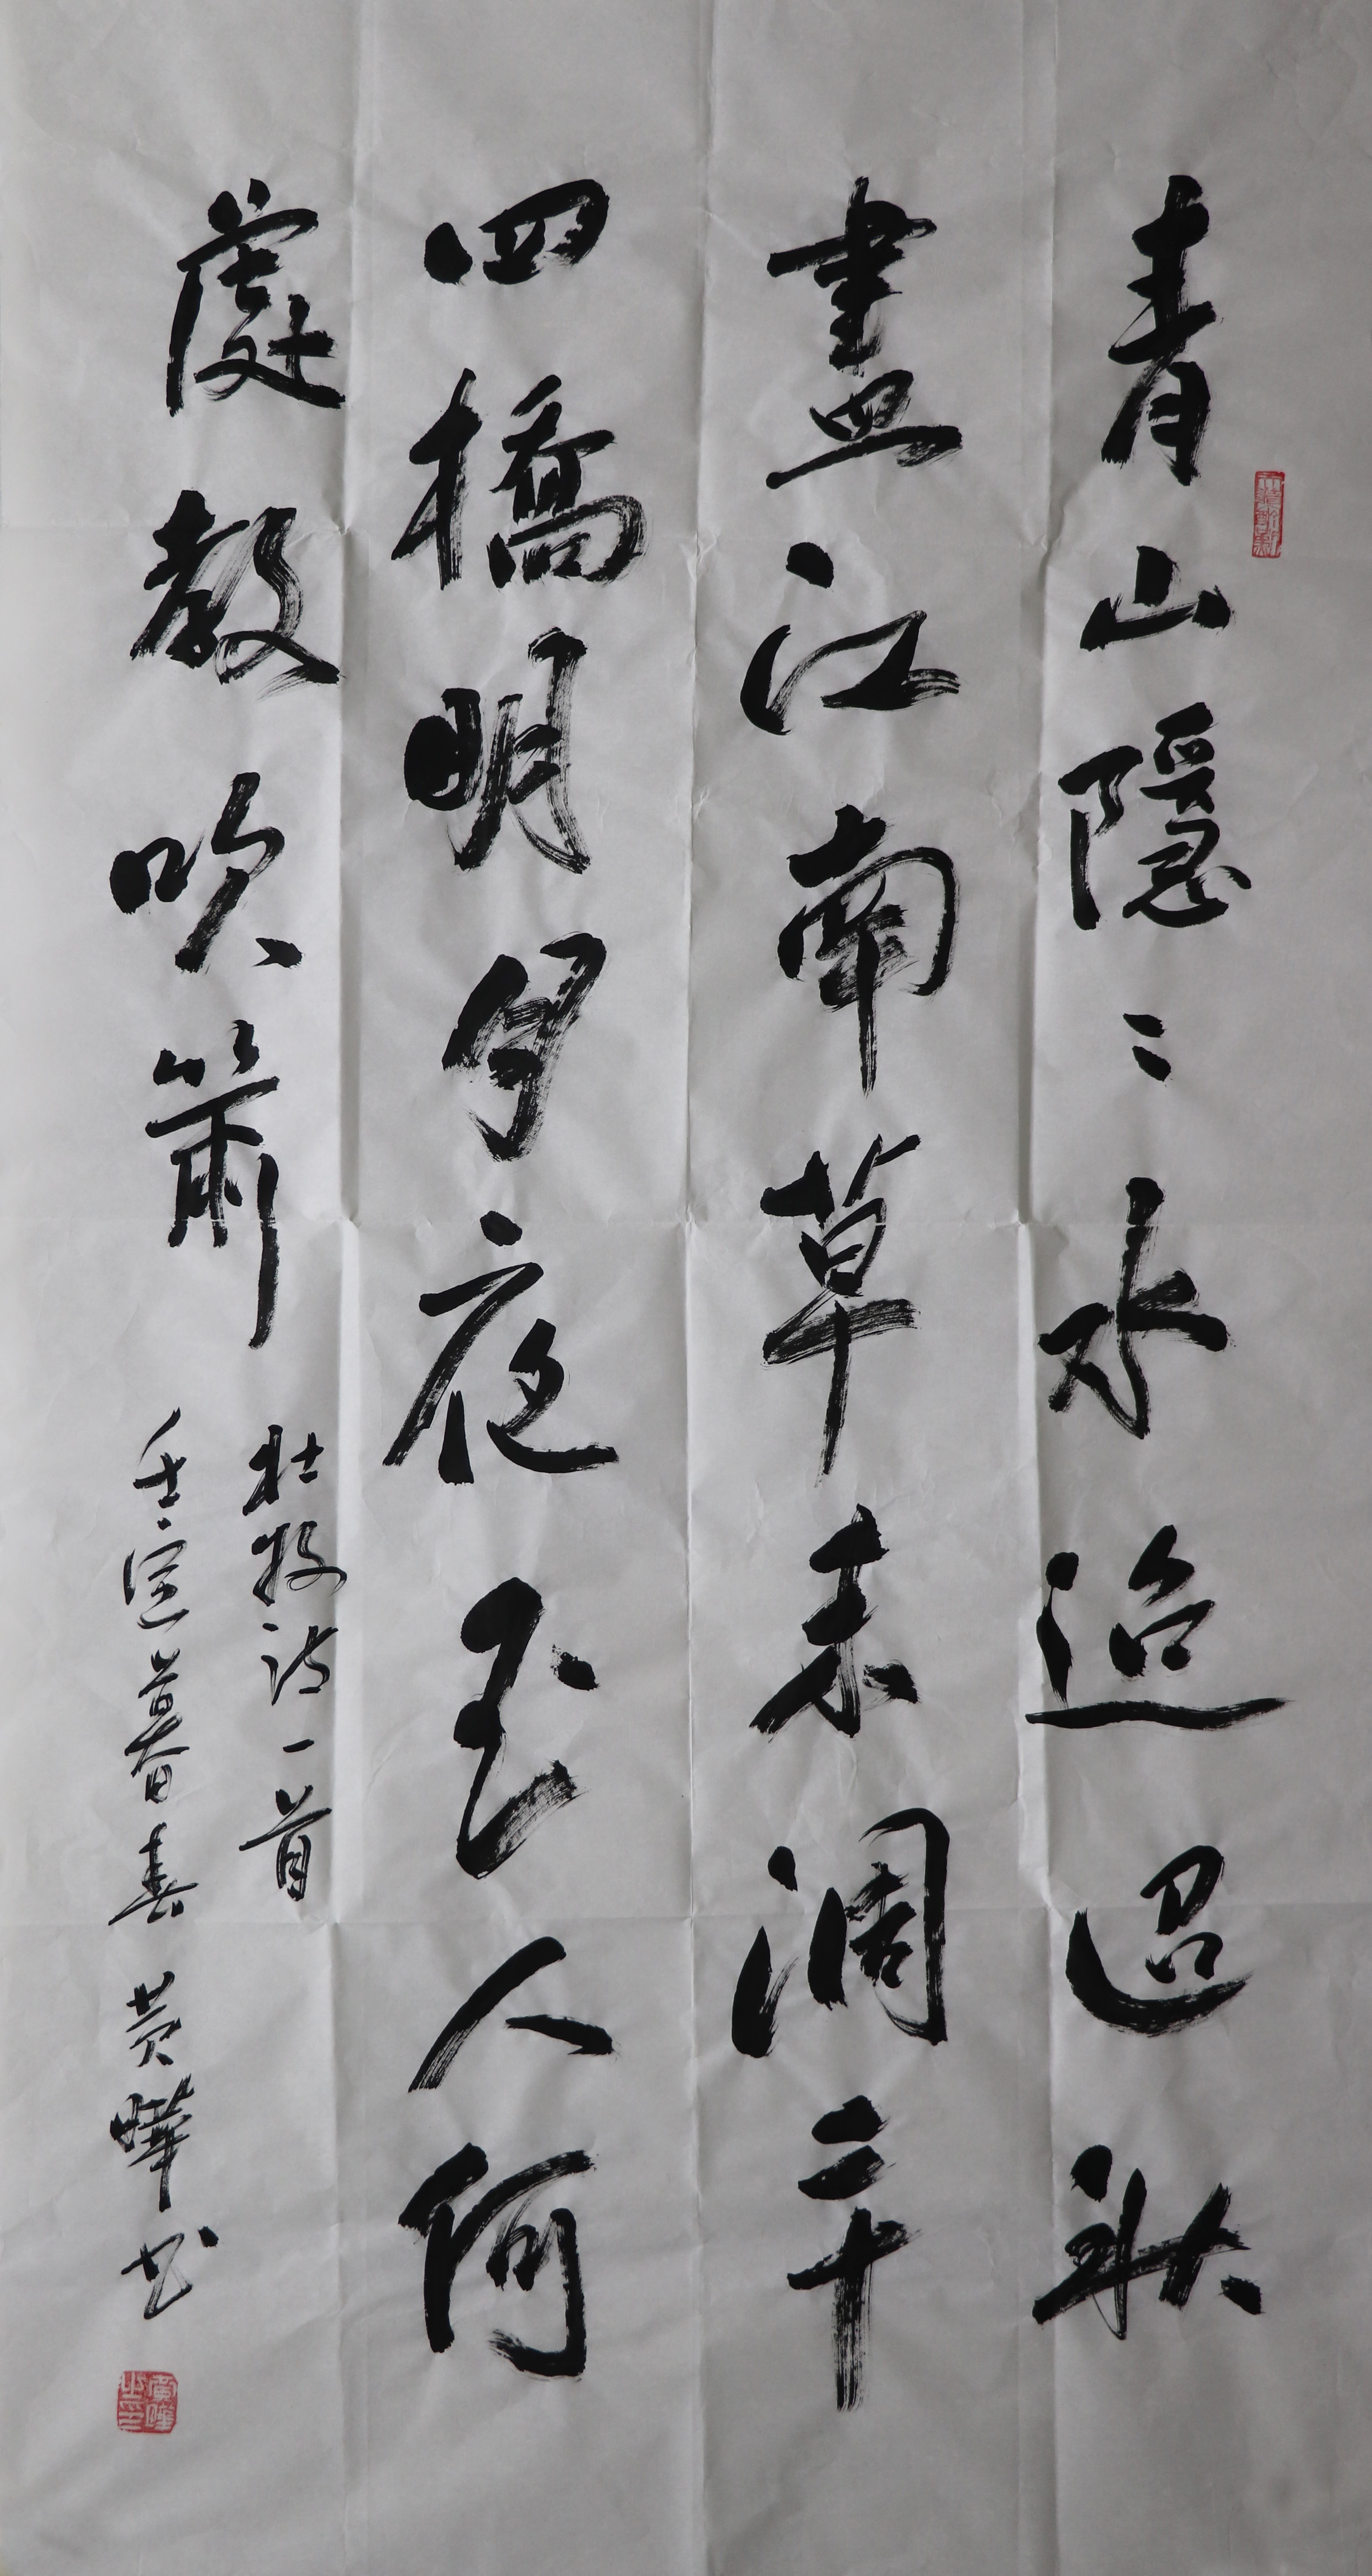 青山隱〻水迢迢秋
盡江南草未凋二十
四橋明月夜玉人何
處教吹簫
杜牧詩一首
壬寅暮春 黄曄书
黄曄之印